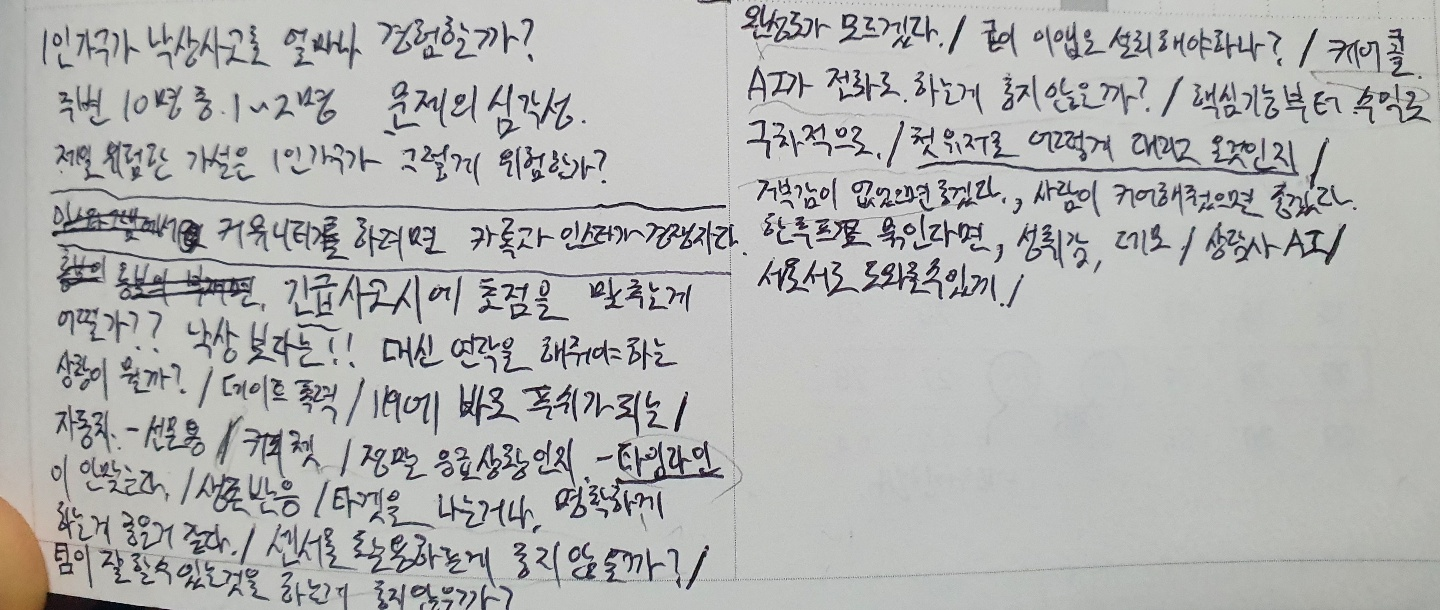 1인가구가 낙상사고를 얼마나 경험할까?
주변 10명 중. 1~2명 문제의 심각성.
제일 위험한 가설은 1인가구가 그렇게 위험한가?
커뮤니티를 하려면 카톡과 인스타가 경쟁자다.
긴급사고시에 초점을 맞추는게
어떨가?? 낙상 보다는!! 대신 연락을 해줘야하는
상황이 뭘까? / 데이트 폭력 / 119에 바로 푸쉬가 되는 /
자동차. - 선물용 / 커피챗 / 정말 응급상황인지. - 타임라인
이 안맞는다. / 생존반응 / 타겟을 나누거나, 명확하게
하는게 좋을거 같다. / 센서를 활용하는게 좋지 않을까? /
팀이 잘 할수있는것을 하는게 좋지않을까?
완성도가 모르겠다. / 굳이 이앱을 설치해야하나? / 케어콜.
AI가 전화로. 하는게 좋지 않을까? / 핵심기능부터 수익도
구체적으로. / 첫 유저를 어떻게 데리고 올것인지 /
거부감이 없었으면 좋겠다., 사람이 케어해줬으면 좋겠다.
묶인다면, 성취감, 데모 / 상담사 AI /
서로서로 도와줄수있게. /